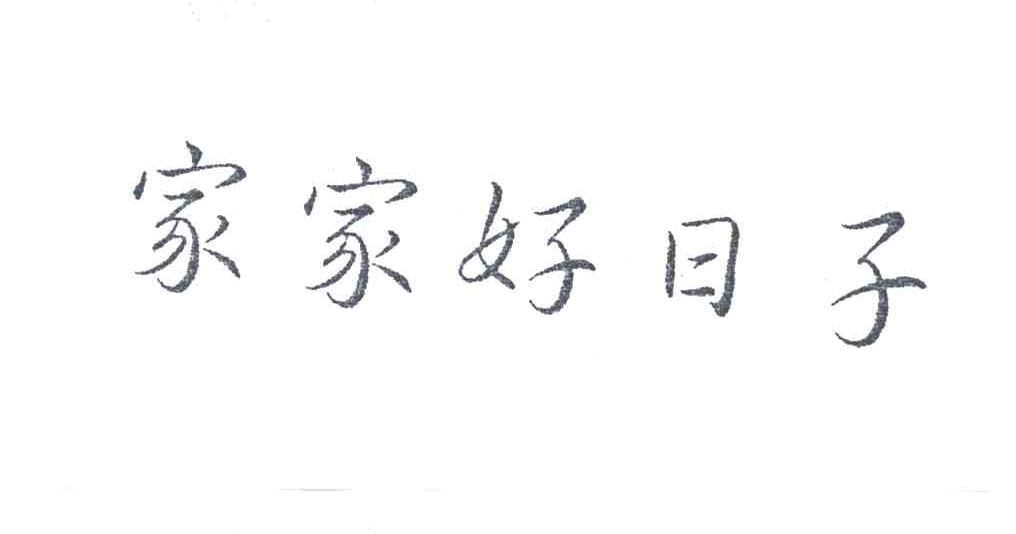 家家好日子